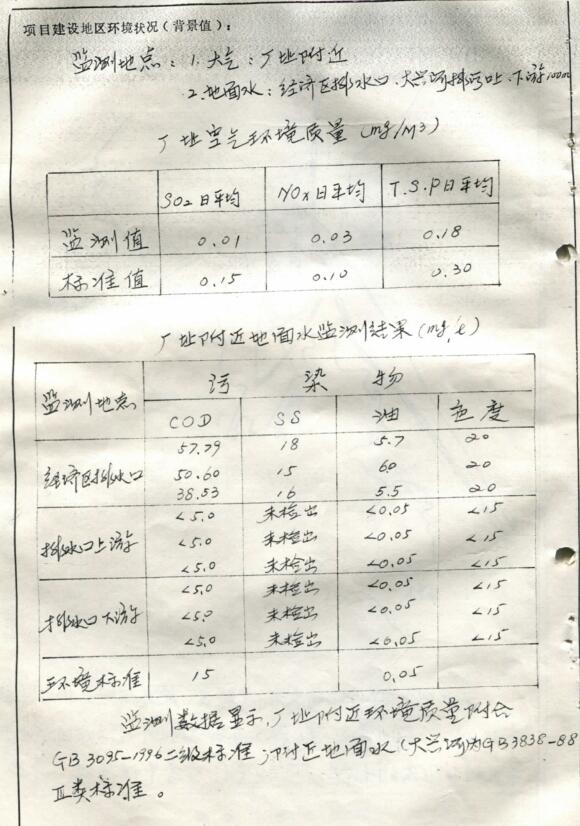 项目建设地区环境状况(背景值):
监测地点:1.大气:厂址附近
2.地面水:经济区排水口、大兴河排污口上、下游100m
厂址空气环境质量(mg/M3)
SO2日平均 NOx日平均 T.S.P日平均
监测值 0.01 0.03 0.18
标准值 0.15 0.10 0.30
厂址附近地面水监测结果(mg/e)
监测地点 污染物
COD SS 油 色度
57.79 18 5.7 20
经济区排水口 50.60 15 6.0 20
38.53 16 5.5 20
<5.0 未检出 <0.05 <15
排水口上游 <5.0 未检出 <0.05 <15
<5.0 未检出 <0.05 <15
<5.0 未检出 <0.05 <15
排水口 游 <5.0 未检出 <0.05 <15
<5.0 未检出 <0.05 <15
环境标准 15 0.05
监测数据显示,厂址附近环境质量附合
GB3095-1996二级标准,附近地面水(大兴河为GB3838-88
Ⅱ类标准。